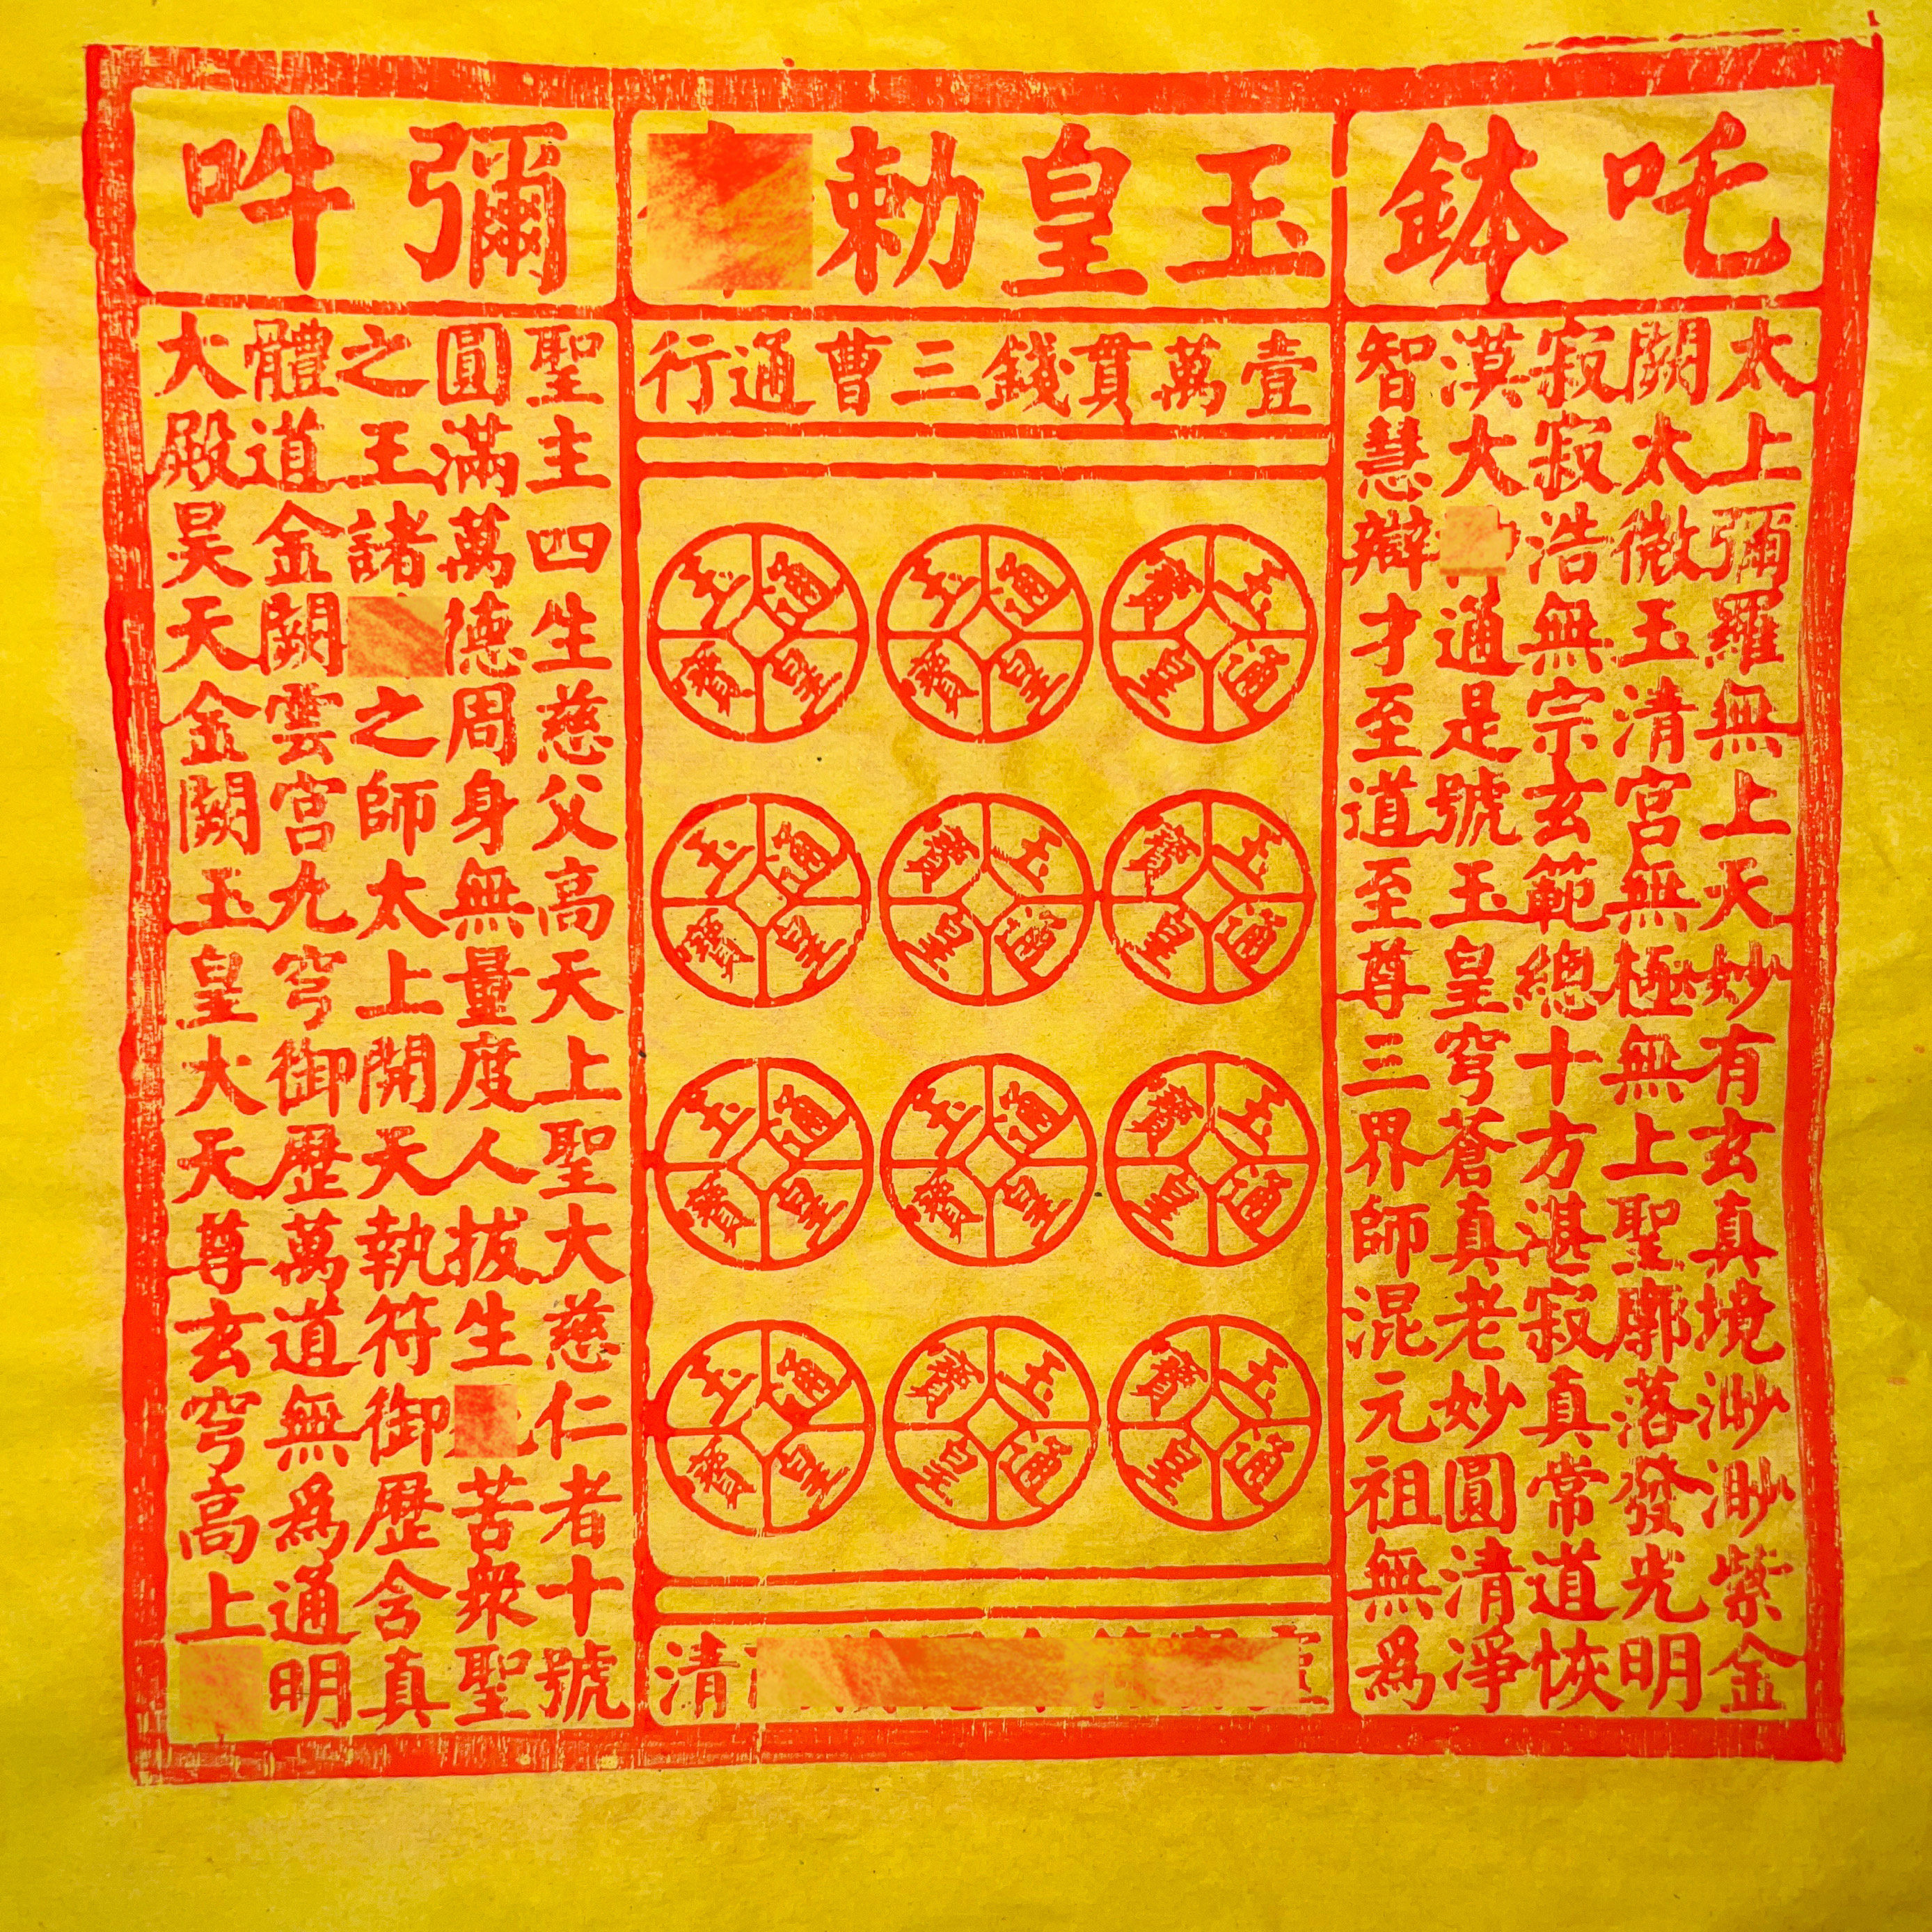 吒鉢
玉皇勅
彌吽
太上彌羅無上天妙有玄真境渺渺紫金
闕太微玉清宮無極無上聖廓落發光明
寂寂浩無宗玄範總十方湛寂真常道恢
漠大通是號玉皇穹蒼真老妙圓清淨
智慧辯才至道至尊三界師混元祖無爲
壹萬貫錢三曹通行
玉皇通寶
玉皇通寶
玉皇通寶
玉皇通寶
玉皇通寶
玉皇通寶
玉皇通寶
玉皇通寶
玉皇通寶
玉皇通寶
玉皇通寶
玉皇通寶
清
聖主四生慈父高天上聖大慈仁者十號
圓滿萬德周身無量度人拔生苦衆聖
之王諸之師太上開天執符御歷含真
體道金闕雲宮九穹御歷萬道無爲通明
大殿昊天金闕玉皇大天尊玄穹高上